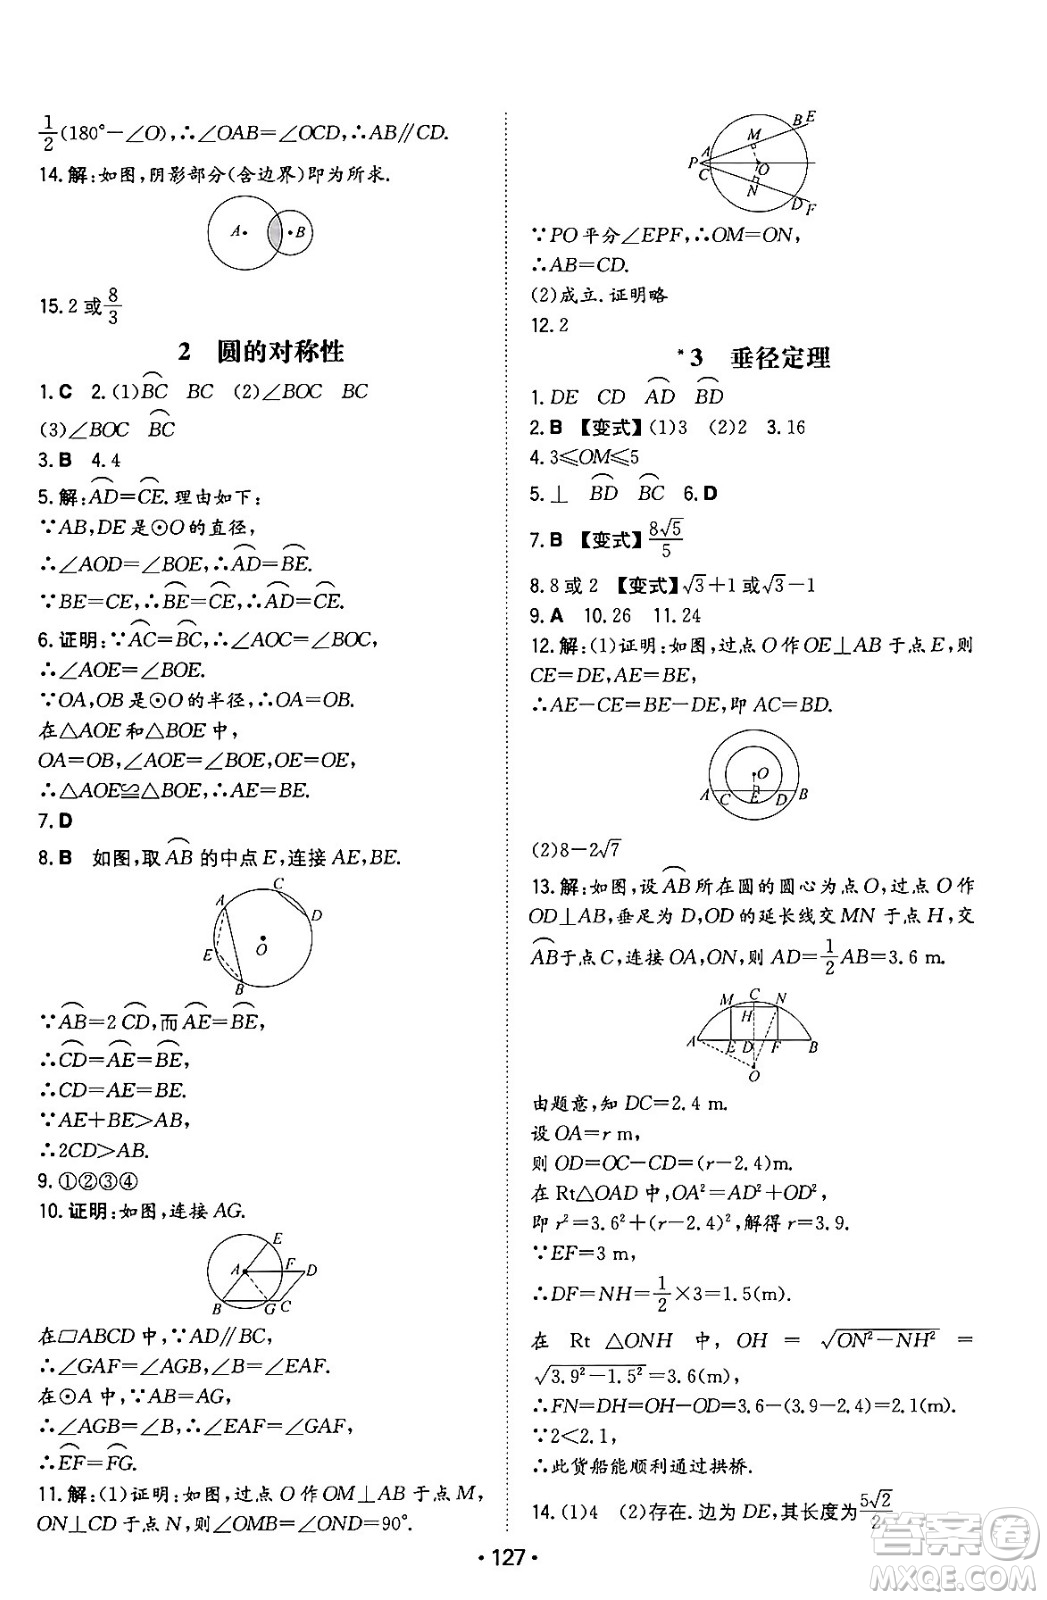 1/2(180°－∠O),∴∠OAB＝∠OCD,∴AB∥CD.
14.解:如图,阴影部分(含边界)即为所求.
A B
15.2 或8/3
2 圆的对称性
1.C 2.(1)⌒BC BC (2)∠BOC BC
(3)∠BOC ⌒BC
3.B 4.4
5.解:⌒AD＝⌒CE.理由如下:
∵AB,DE 是⊙O 的直径,
∴∠AOD＝∠BOE,∴⌒AD＝⌒BE.
∵BE＝CE,∴⌒BE＝⌒CE,∴⌒AD＝⌒CE.
6.证明:∵⌒AC＝⌒BC,∴∠AOC＝∠BOC,
∴∠AOE＝∠BOE.
∵OA,OB 是⊙O 的半径,∴OA＝OB.
在△AOE 和△BOE 中,
OA＝OB,∠AOE＝∠BOE,OE＝OE,
∴△AOE≌△BOE,∴AE＝BE.
7.D
8.B 如图,取⌒AB 的中点 E,连接 AE,BE.
A C D E O B
∵⌒AB＝2⌒CD,而⌒AE＝⌒BE,
∴⌒CD＝⌒AE＝⌒BE,
∴CD＝AE＝BE.
∵AE＋BE＞AB,
∴2CD＞AB.
9.①②③④
10.证明:如图,连接 AG.
E A F D B G C
在▱ABCD 中,∵AD∥BC,
∴∠GAF＝∠AGB,∠B＝∠EAF.
在⊙A 中,∵AB＝AG,
∴∠AGB＝∠B,∴∠EAF＝∠GAF,
∴⌒EF＝⌒FG.
11.解:(1)证明:如图,过点 O 作 OM⊥AB 于点 M,
ON⊥CD 于点 N,则∠OMB＝∠OND＝90°.
M B E A P C O N D F
∵PO 平分∠EPF,∴OM＝ON,
∴AB＝CD.
(2)成立.证明略
12.2
*3 垂径定理
1.DE CD ⌒AD ⌒BD
2.B 【变式】(1)3 (2)2 3.16
4.3⩽OM⩽5
5.⊥ ⌒BD ⌒BC 6.D
7.B 【变式】8√5/5
8.8 或 2 【变式】√3＋1 或√3－1
9.A 10.26 11.24
12.解:(1)证明:如图,过点 O 作 OE⊥AB 于点 E,则
CE＝DE,AE＝BE,
∴AE－CE＝BE－DE,即 AC＝BD.
O A C E D B
(2)8－2√7
13.解:如图,设⌒AB所在圆的圆心为点 O,过点 O 作
OD⊥AB,垂足为 D,OD 的延长线交 MN 于点 H,交
⌒AB于点 C,连接 OA,ON,则 AD＝1/2AB＝3.6 m.
M C N H A E D F B O
由题意,知 DC＝2.4 m.
设 OA＝r m,
则 OD＝OC－CD＝(r－2.4)m.
在 Rt△OAD 中,OA²＝AD²＋OD²,
即 r²＝3.6²＋(r－2.4)²,解得 r＝3.9.
∵EF＝3 m,
∴DF＝NH＝1/2×3＝1.5(m).
在 Rt △ONH 中, OH ＝ √(ON²－NH²) ＝
√(3.9²－1.5²)＝3.6(m),
∴FN＝DH＝OH－OD＝3.6－(3.9－2.4)＝2.1(m).
∵2＜2.1,
∴此货船能顺利通过拱桥.
14.(1)4 (2)存在.边为 DE,其长度为5√2/2
·127·
答案卷
MXQE.COM